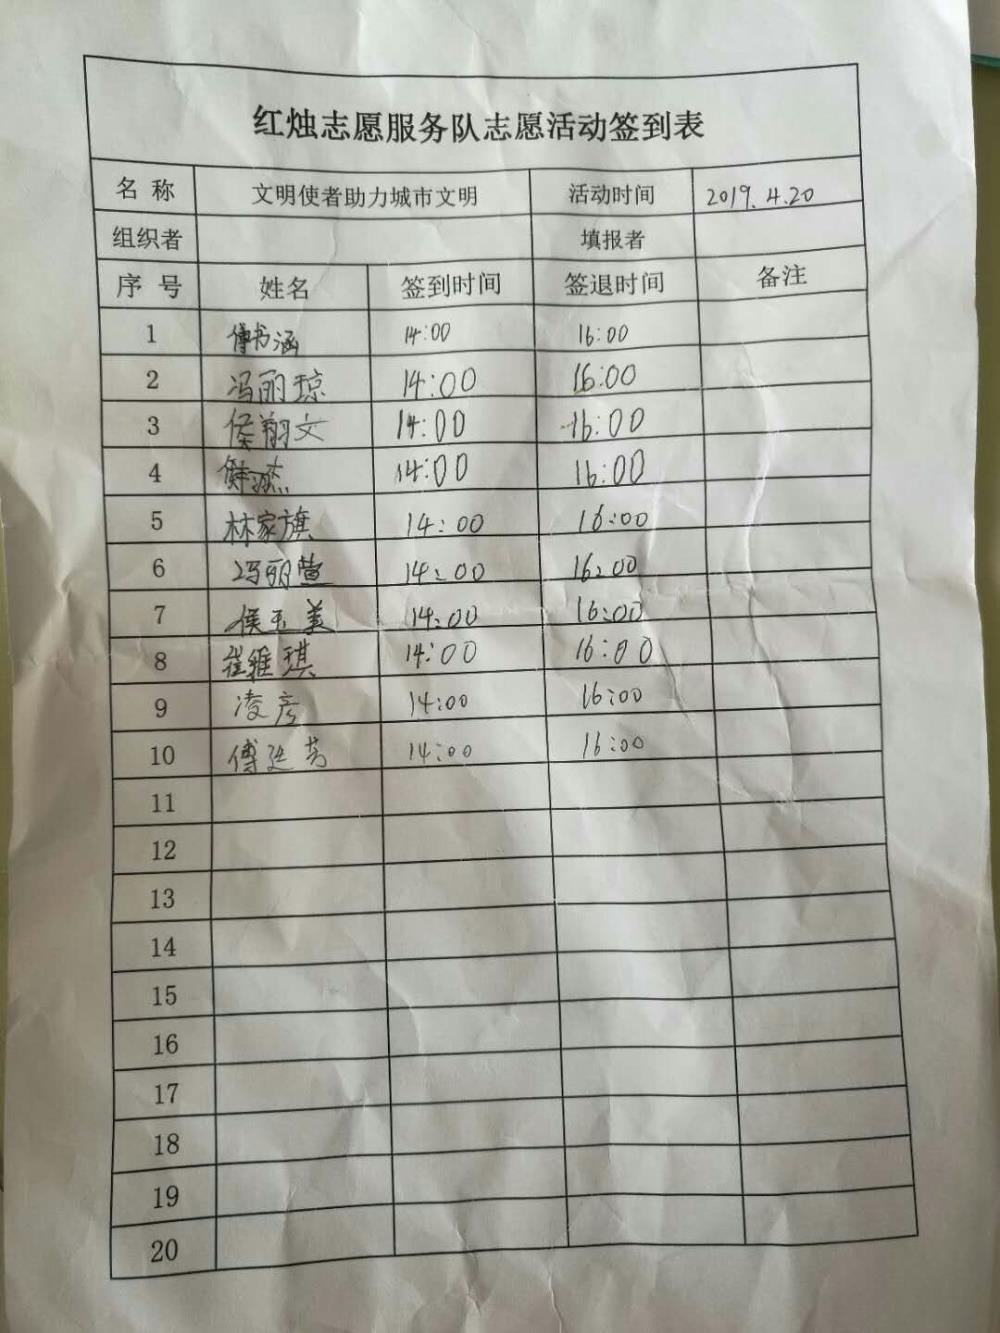 红烛志愿服务队志愿活动签到表
名 称 文明使者助力城市文明 活动时间 2019.4.20
组织者 填报者
序 号 姓名 签到时间 签退时间 备注
1 傅书涵 14:00 16:00
2 冯丽琼 14:00 16:00
3 侯翔文 14:00 16:00
4 14:00 16:00
5 林家旗 14:00 16:00
6 冯丽萱 14:00 16:00
7 侯玉美 14:00 16:00
8 崔维琪 14:00 16:00
9 凌彦 14:00 16:00
10 傅廷芳 14:00 16:00
11
12
13
14
15
16
17
18
19
20